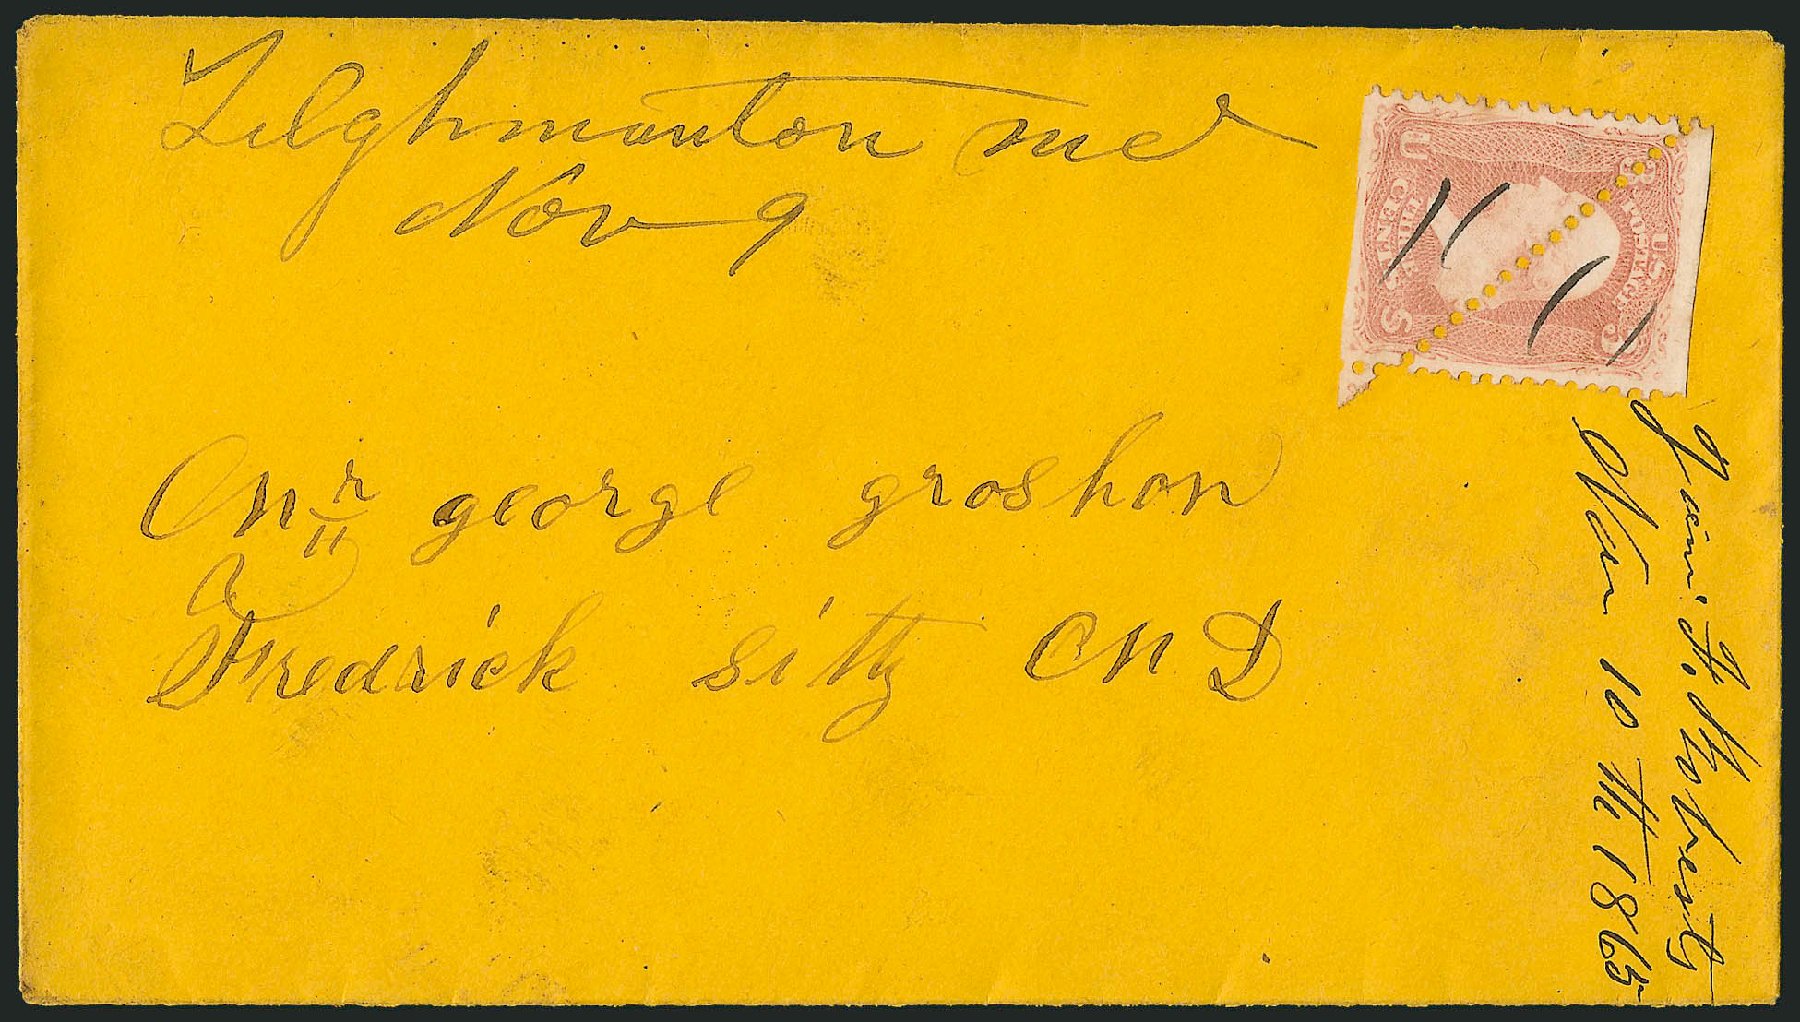 Tilghmanton md
Nov 9
U S
THREE CENTS
U.S.
3
Mr george groshon
Fredrick sitty MD
Nov 10 th 1865